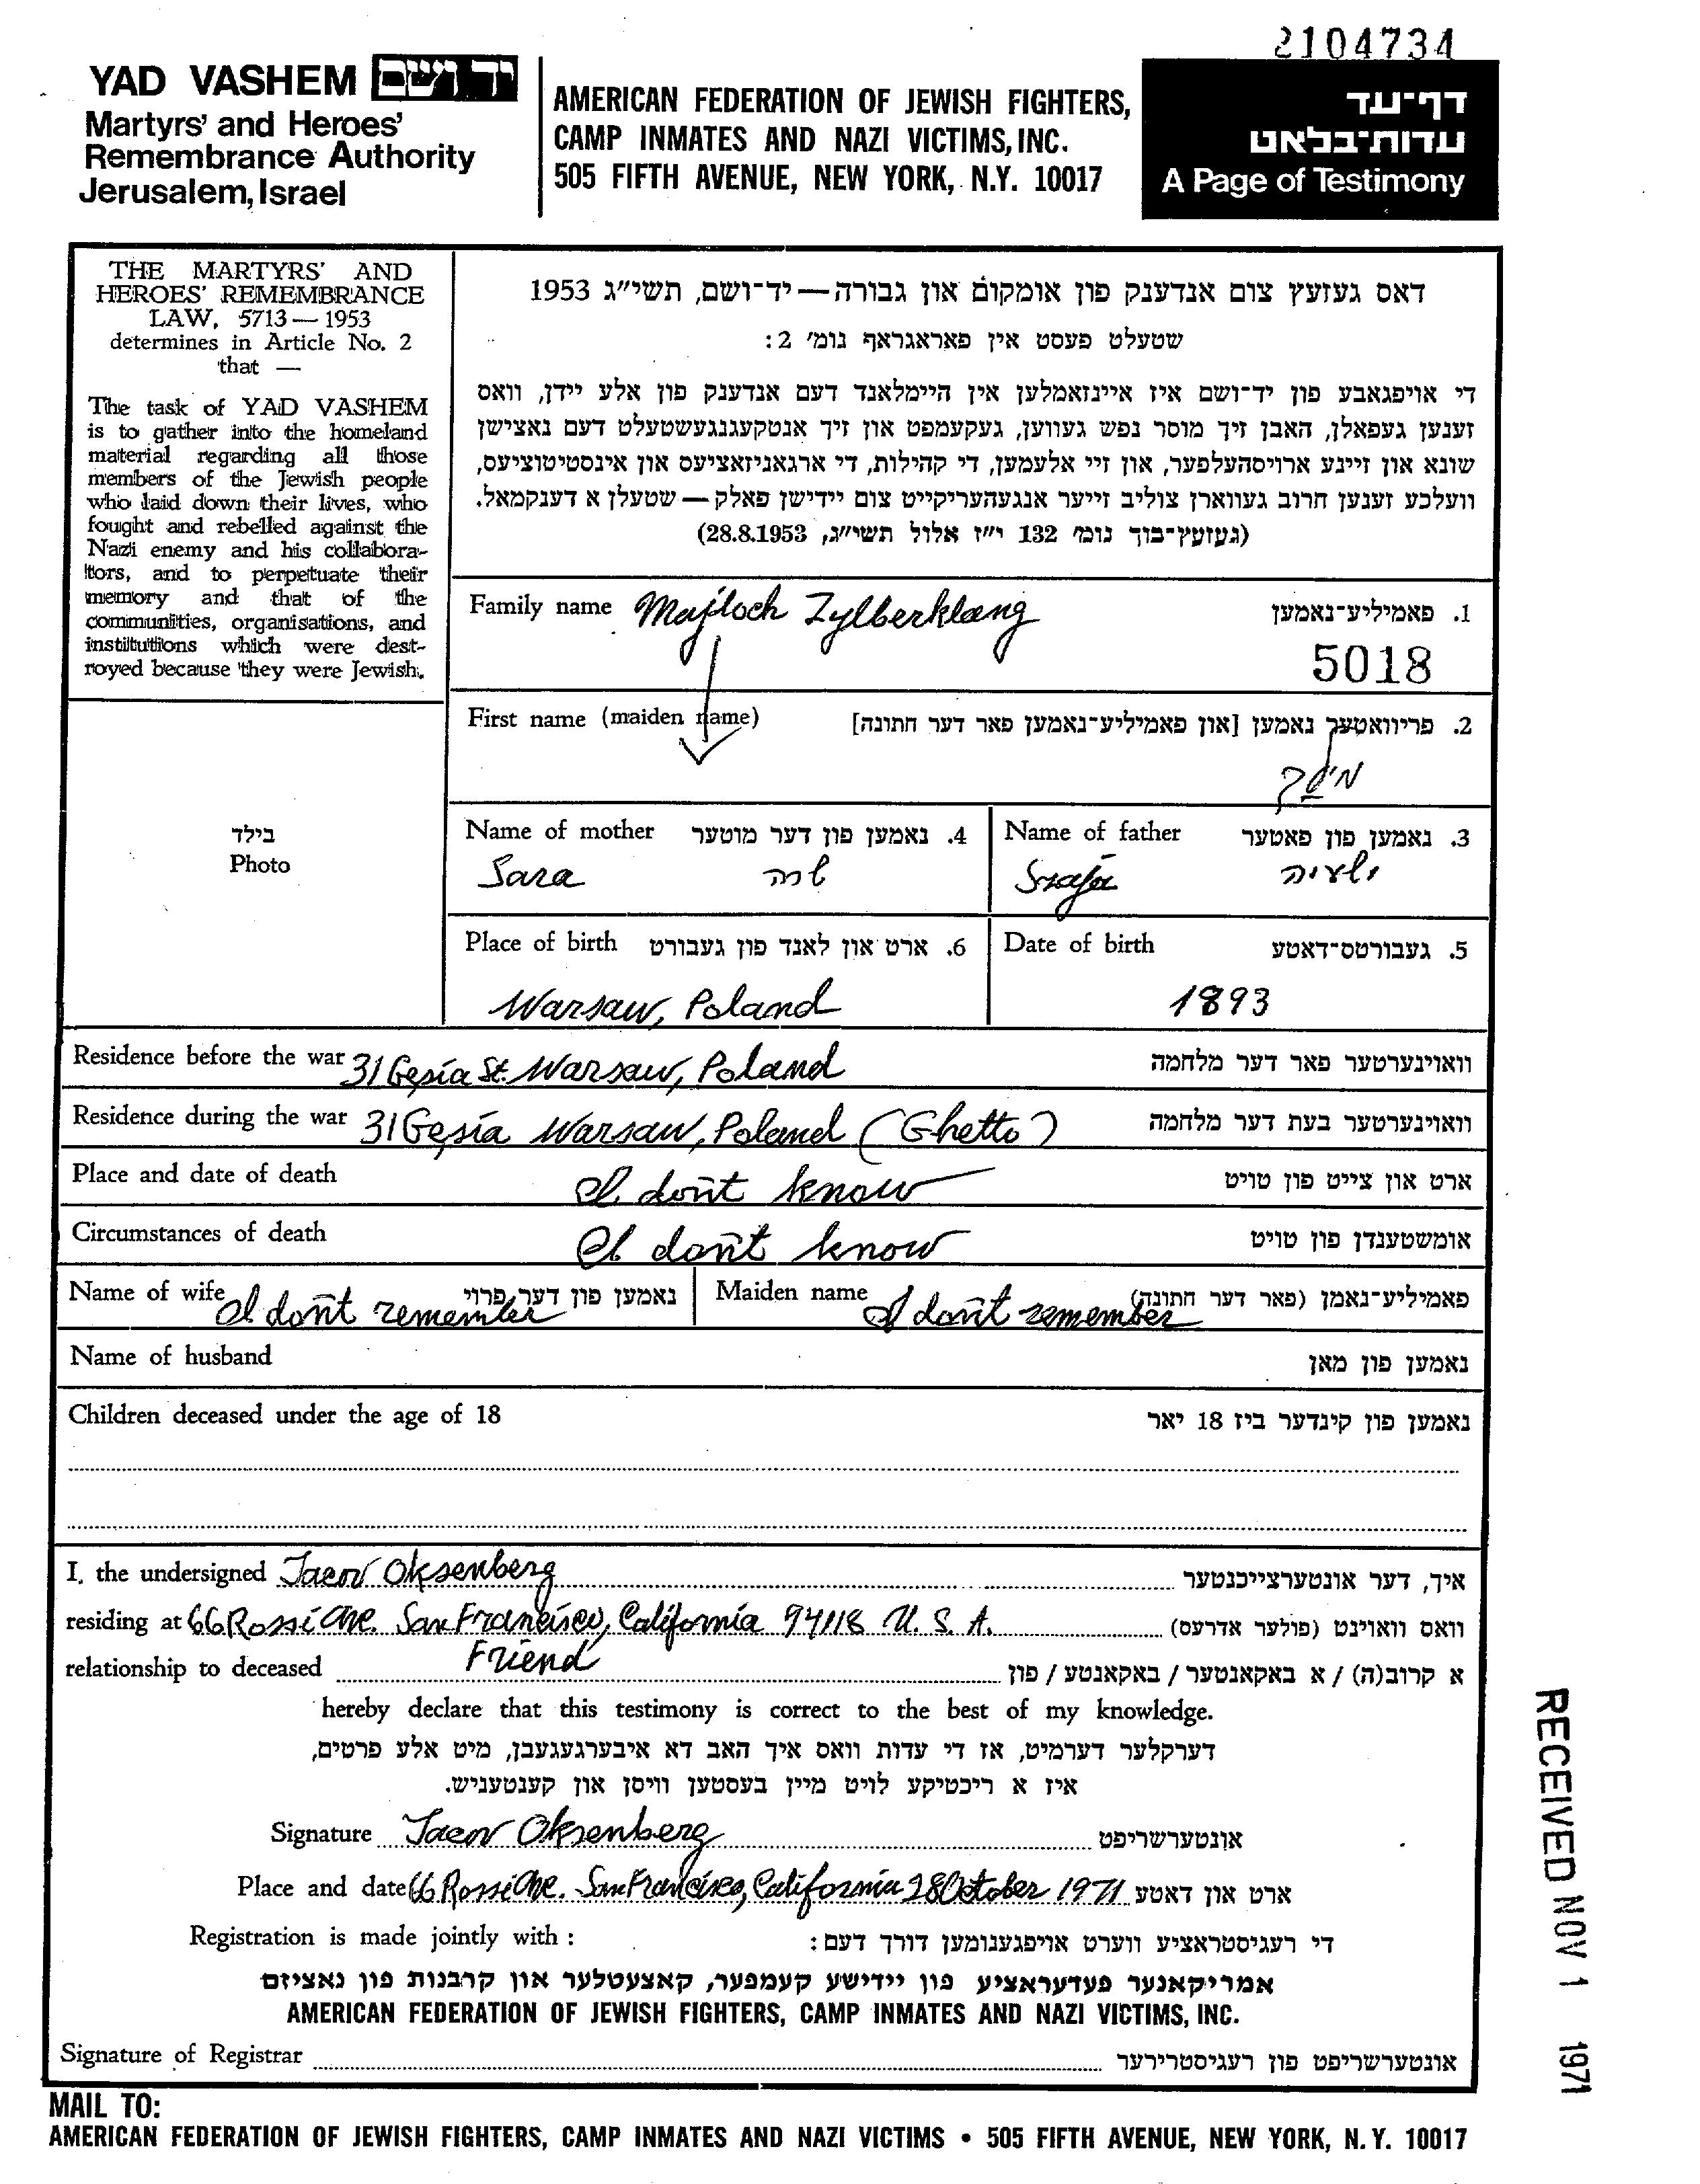 2104734
YAD VASHEM יד ושם
Martyrs' and Heroes'
Remembrance Authority
Jerusalem, Israel
AMERICAN FEDERATION OF JEWISH FIGHTERS,
CAMP INMATES AND NAZI VICTIMS, INC.
505 FIFTH AVENUE, NEW YORK, N.Y. 10017
דף־עד
עדות־בלאט
A Page of Testimony
THE MARTYRS' AND
HEROES' REMEMBRANCE
LAW, 5713—1953
determines in Article No. 2
that —
The task of YAD VASHEM
is to gather into the homeland
material regarding all those
members of the Jewish people
who laid down their lives, who
fought and rebelled against the
Nazi enemy and his collabora-
tors, and to perpetuate their
memory and that of the
communities, organisations, and
institutions which were dest-
royed because they were Jewish.
דאס געזעץ צום אנדענק פון אומקום און גבורה—יד־ושם, תשי״ג 1953
שטעלט פעסט אין פאראגראף נומ׳ 2:
די אויפגאבע פון יד־ושם איז איינזאמלען אין היימלאנד דעם אנדענק פון אלע יידן, וואס
זענען געפאלן, האבן זיך מוסר נפש געווען, געקעמפט און זיך אנטקעגנגעשטעלט דעם נאצישן
שונא און זיינע ארויסהעלפער, און זיי אלעמען, די קהילות, די ארגאניזאציעס און אינסטיטוציעס,
וועלכע זענען חרוב געווארן צוליב זייער אנגעהעריקייט צום יידישן פאלק—שטעלן א דענקמאל.
(געזעץ־בוך נומ׳ 132 י״ז אלול תשי״ג, 28.8.1953)
Family name Majloch Zylberklang 1. פאמיליע־נאמען
5018
First name (maiden name) 2. פריוואטער נאמען [און פאמיליע־נאמען פאר דער חתונה]
בילד
Photo
Name of mother 4. נאמען פון דער מוטער
Sara שרה
Name of father 3. נאמען פון פאטער
Szaja ישעיה
Place of birth 6. ארט און לאנד פון געבורט
Warsaw, Poland
Date of birth 5. געבורטס־דאטע
1893
Residence before the war 31 Gęsia St. Warsaw, Poland וואוינערטער פאר דער מלחמה
Residence during the war 31 Gęsia Warsaw, Poland (Ghetto) וואוינערטער בעת דער מלחמה
Place and date of death I don't know ארט און צייט פון טויט
Circumstances of death I don't know אומשטענדן פון טויט
Name of wife I don't remember נאמען פון דער פרוי
Maiden name I don't remember פאמיליע־נאמן (פאר דער חתונה)
Name of husband נאמען פון מאן
Children deceased under the age of 18 נאמען פון קינדער ביז 18 יאר
I, the undersigned Oksenberg איך, דער אונטערצייכנטער
residing at 66 Rossi Ave. San Francisco, California 94118 U.S.A. וואס וואוינט (פולער אדרעס)
relationship to deceased Friend א קרוב(ה) / א באקאנטער / באקאנטע / פון
hereby declare that this testimony is correct to the best of my knowledge.
דערקלער דערמיט, אז די עדות וואס איך האב דא איבערגעגעבן, מיט אלע פרטים,
איז א ריכטיקע לויט מיין בעסטען וויסן און קענטעניש.
Signature Oksenberg אונטערשריפט
Place and date 66 Rossi Ave. San Francisco, California 28 October 1971 ארט און דאטע
Registration is made jointly with : די רעגיסטראציע ווערט אויפגענומען דורך דעם:
אמריקאנער פעדעראציע פון יידישע קעמפער, קאצעטלער און קרבנות פון נאציזם
AMERICAN FEDERATION OF JEWISH FIGHTERS, CAMP INMATES AND NAZI VICTIMS, INC.
Signature of Registrar אונטערשריפט פון רעגיסטרירער
MAIL TO:
AMERICAN FEDERATION OF JEWISH FIGHTERS, CAMP INMATES AND NAZI VICTIMS • 505 FIFTH AVENUE, NEW YORK, N.Y. 10017
RECEIVED NOV 1 1971